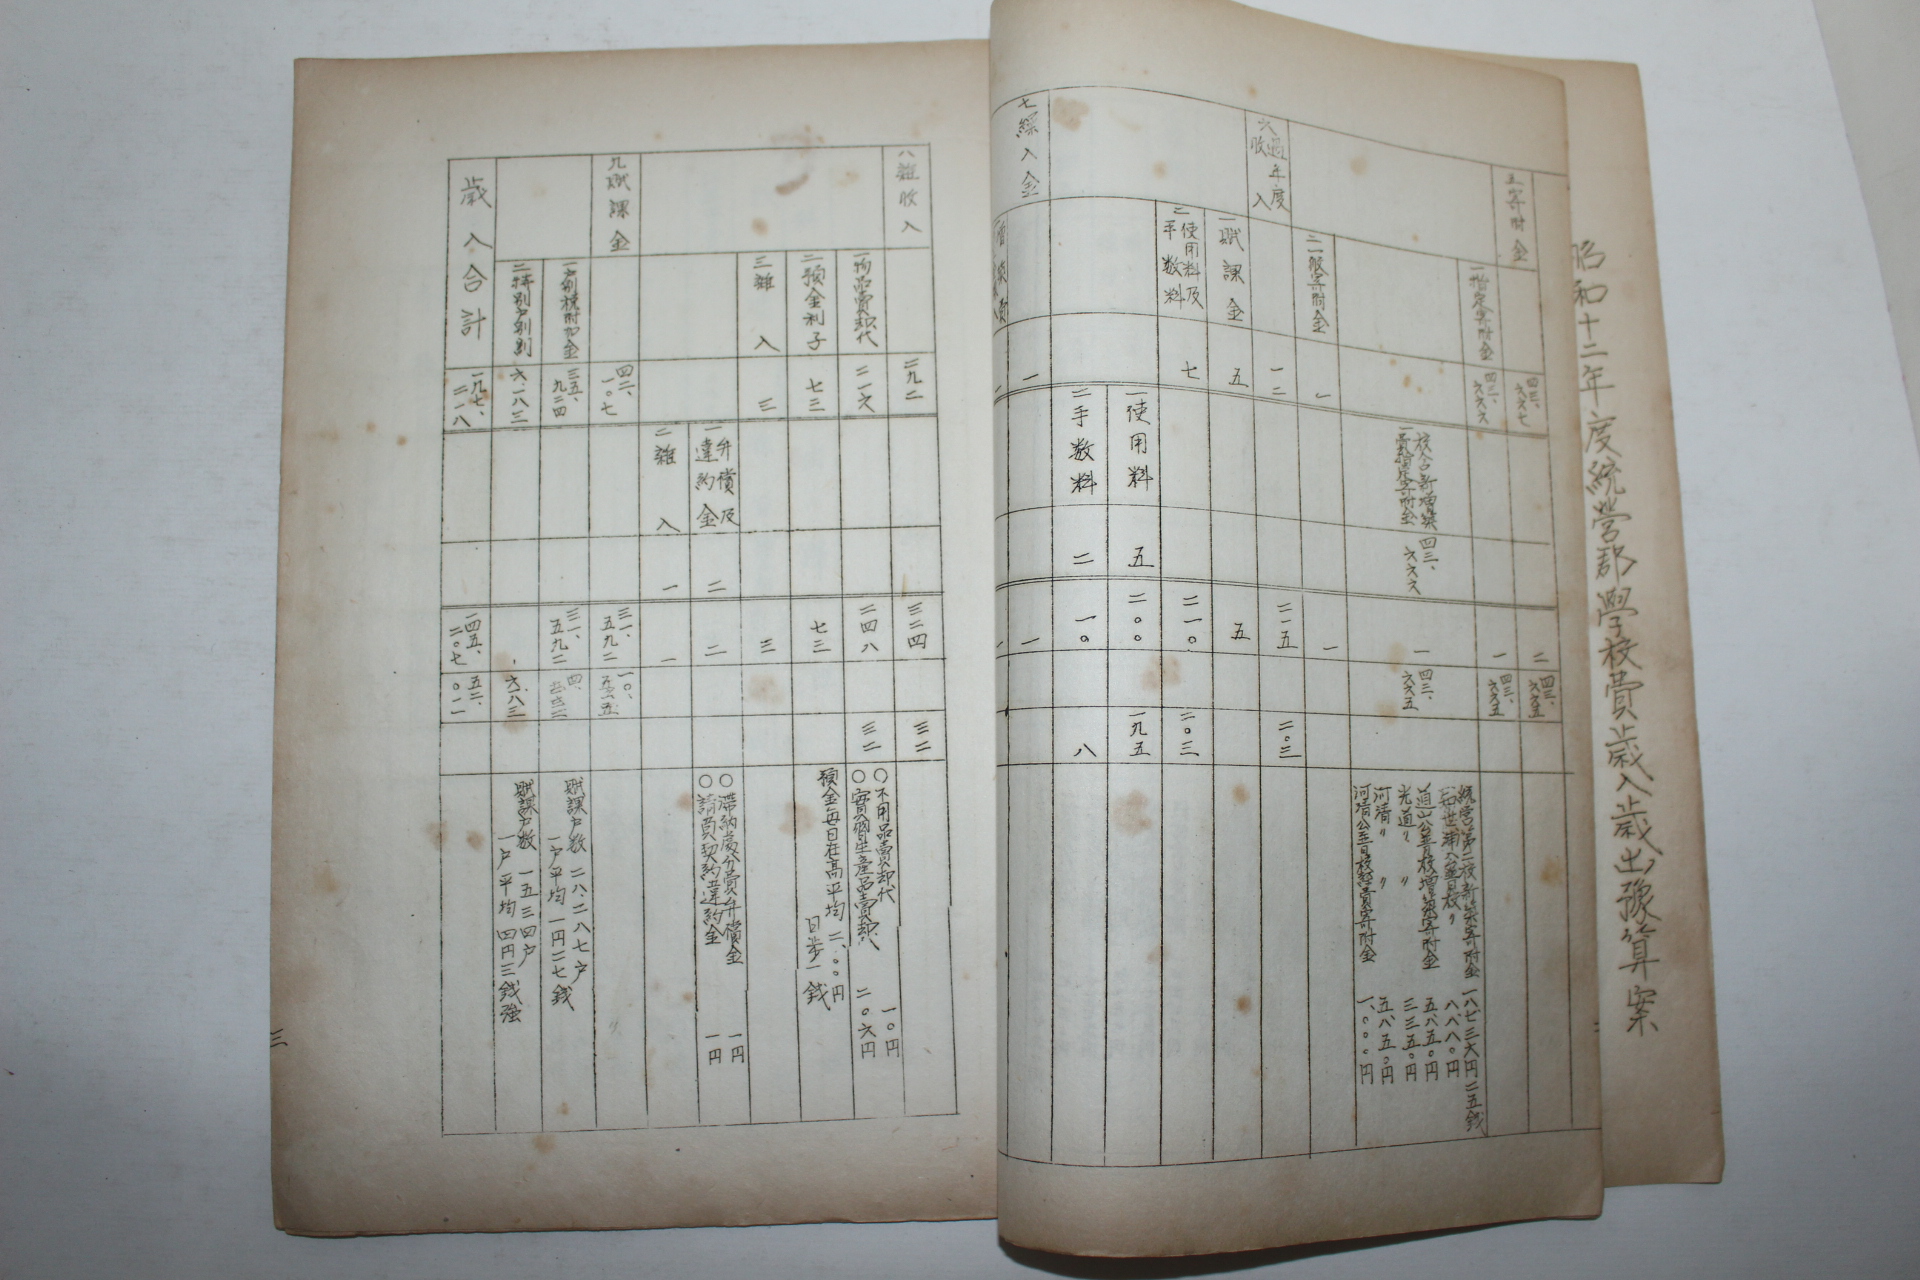 昭和十二年度統營郡學校費歲入歲出豫算案
五寄附金
四三、六六七
二
四三、六六五
一指定寄附金
四三、六六六
一
四三、六六五
校舍新增築費指定寄附金
四三、六六六
一
四三、六六五
統營第二校新築寄附金 一八七三六円二五錢
八八八〇円
道山公普校增築寄附金 五八五〇円
光道〃 〃 三三五〇円
河清〃 〃 五八五〇円
河清公普校經費寄附金 一、〇〇〇円
二一般寄附金
一
一
六過年度收入
一二
二一五
二〇三
一賦課金
五
五
二使用料及手數料
七
二一〇
二〇三
一使用料
五
二〇〇
一九五
二手數料
二
一〇
八
七繰入金
一
一
八雜收入
二九二
三二四
三二
一物品賣却代
二一六
二四八
三二
〇不用品賣却代 一〇円
〇實習生產品賣却代 二〇六円
二預金利子
七三
七三
預金每日在高平均 二、〇〇〇円
日步一錢
三雜入
三
三
一弁償及違約金
二
二
〇滯納處分費弁償金 一円
〇請負契約違約金 一円
二雜入
一
一
九賦課金
四二、一〇七
三一、五九二
一〇、五一五
一戶別稅附加金
三五、九二四
三一、五九二
四、三三二
賦課戶數 二八、二八七戶
一戶平均 一円二七錢
二特別戶別割
六、一八三
六、一八三
賦課戶數 一五三四戶
一戶平均 四円三錢強
歲入合計
一九七、二一八
一四五、二〇七
五二、〇一一
三